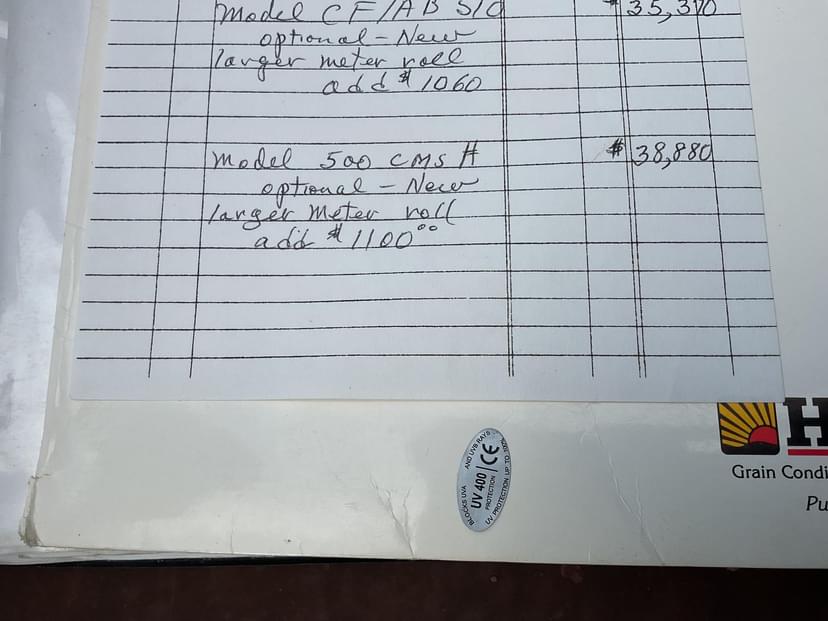 Model CF/AB S/C $35,370
optional - New
larger meter roll
add $1060
Model 500 CMS H $38,880
optional - New
larger meter roll
add $1100⁰⁰
BLOCKS UVA AND UVB RAYS
UV 400 CE
PROTECTION
UV PROTECTION UP TO
H
Grain Condi
Pu